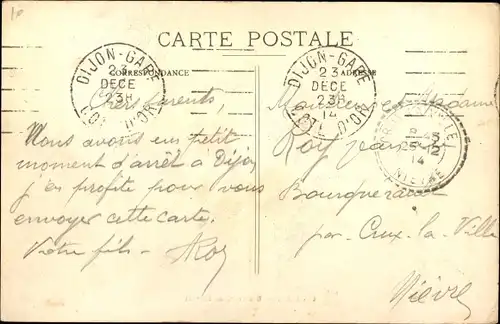 10
CARTE POSTALE
CORRESPONDANCE
ADRESSE
DIJON-GARE
23
DECE
23H
COTE D'OR
DIJON-GARE
23
DECE
23H
14
COTE D'OR
8 45
25-12
14
NIEVRE
Chers parents,
Nous avons un petit
moment d'arrêt à Dijon
j'en profite pour vous
envoyer cette carte.
Votre fils - ARoy
Monsieur et Madame
Roy
par Crux-la-Ville
Nièvre